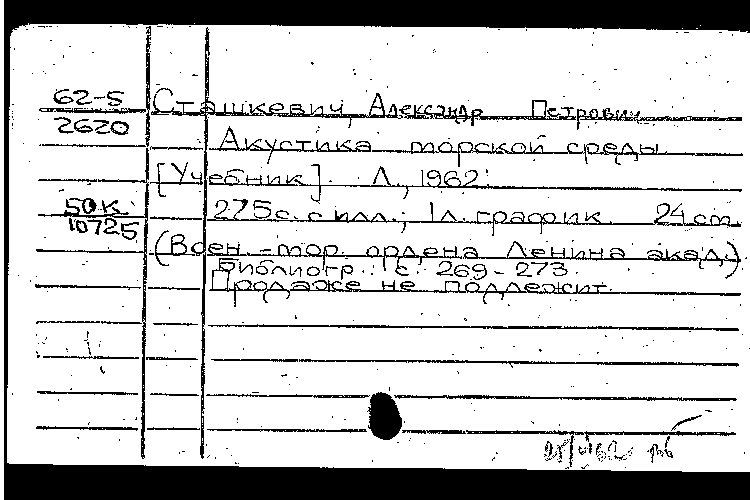 62-5
2620
Сташкевич, Александр Петрович
Акустика морской среды
[Учебник]. Л., 1962.
50 к.
10725
275 с. с илл.; 1 л. график. 24 см.
(Воен.-мор. ордена Ленина акад.)
Библиогр.: с. 269-273.
Продаже не подлежит.